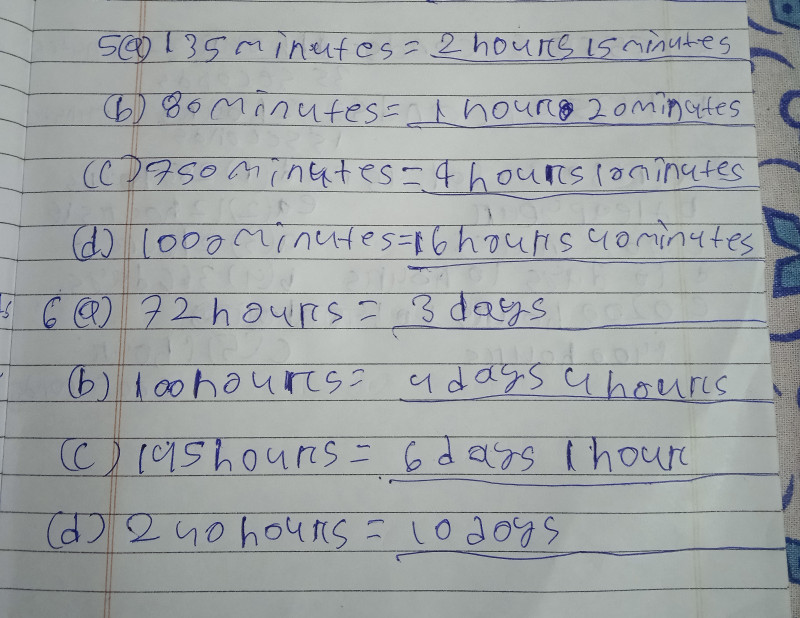 5(a) 135 minutes = 2 hours 15 minutes
(b) 80 minutes = 1 hour 20 minutes
(c) 250 minutes = 4 hours 10 minutes
(d) 1000 minutes = 16 hours 40 minutes
6(a) 72 hours = 3 days
(b) 100 hours = 4 days 4 hours
(c) 145 hours = 6 days 1 hour
(d) 240 hours = 10 days